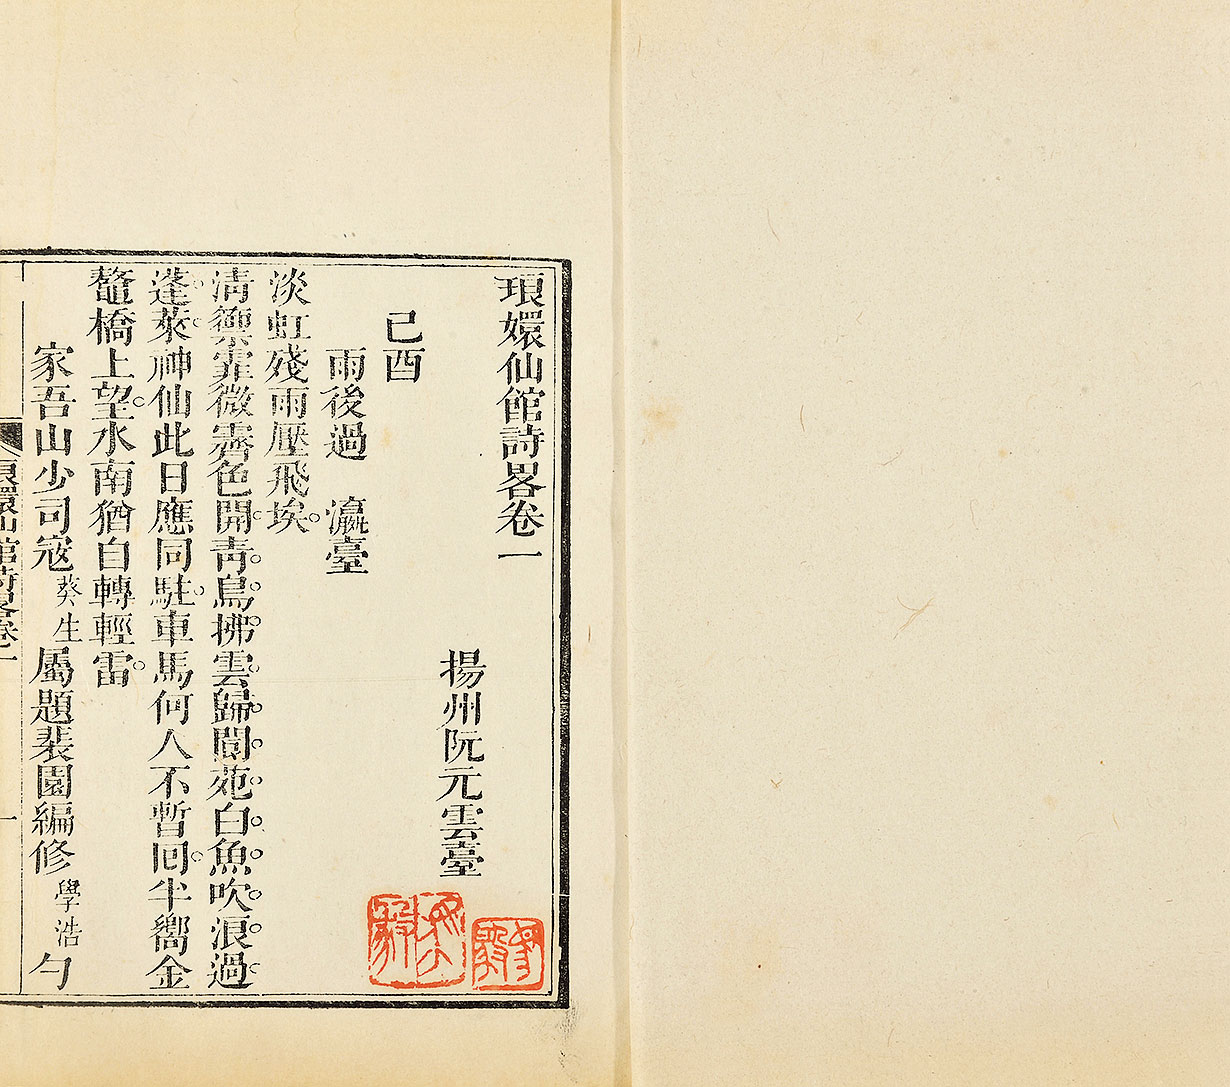 琅嬛仙館詩畧卷一
揚州阮元雲臺
己酉
雨後過　瀛臺
淡虹殘雨壓飛埃。
清籞霏微霽色開青鳥拂雲歸閬苑白魚吹浪過
蓬萊神仙此日應同駐車馬何人不暫囘半嚮金
鼇橋上望水南猶自轉輕雷
家吾山少司寇葵生屬題裴園編修學浩勺
琅嬛仙館詩畧卷一
一